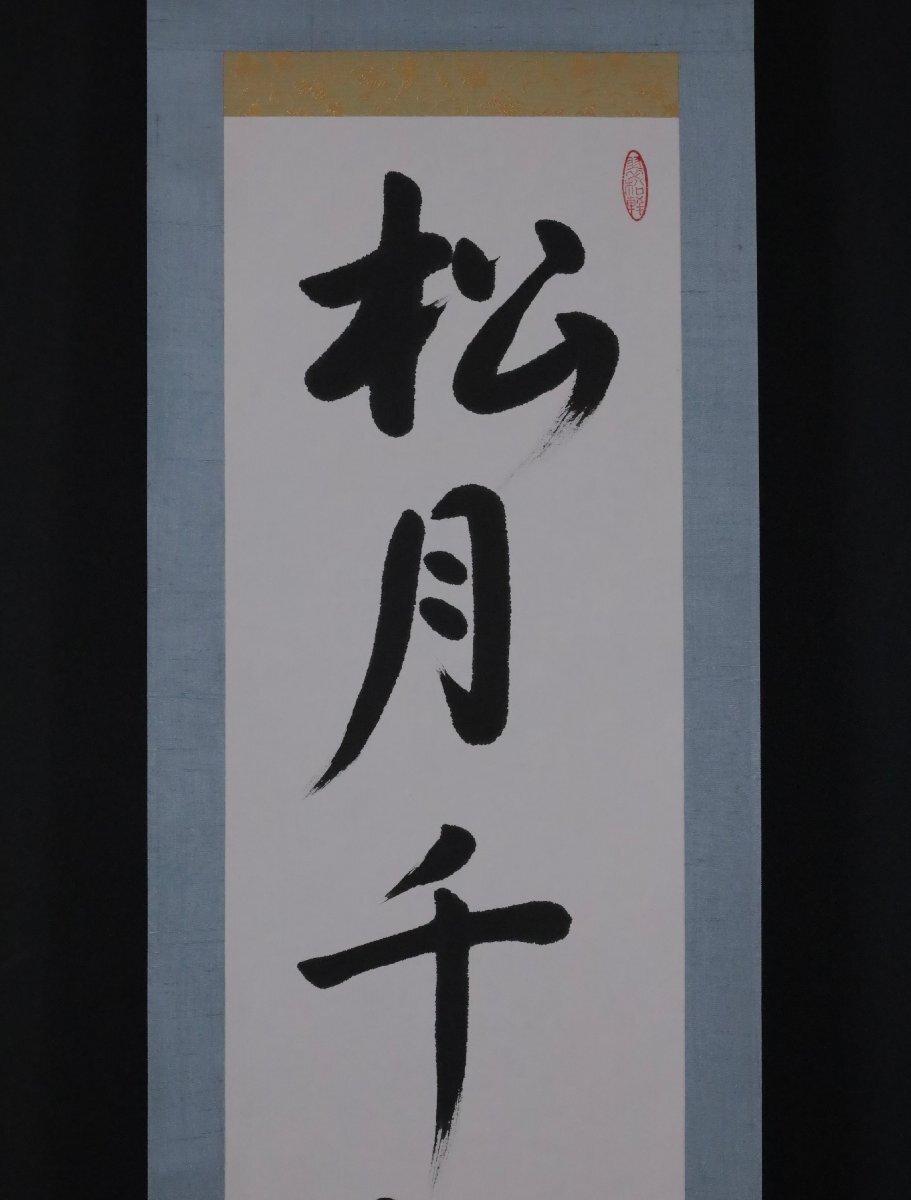 松月千